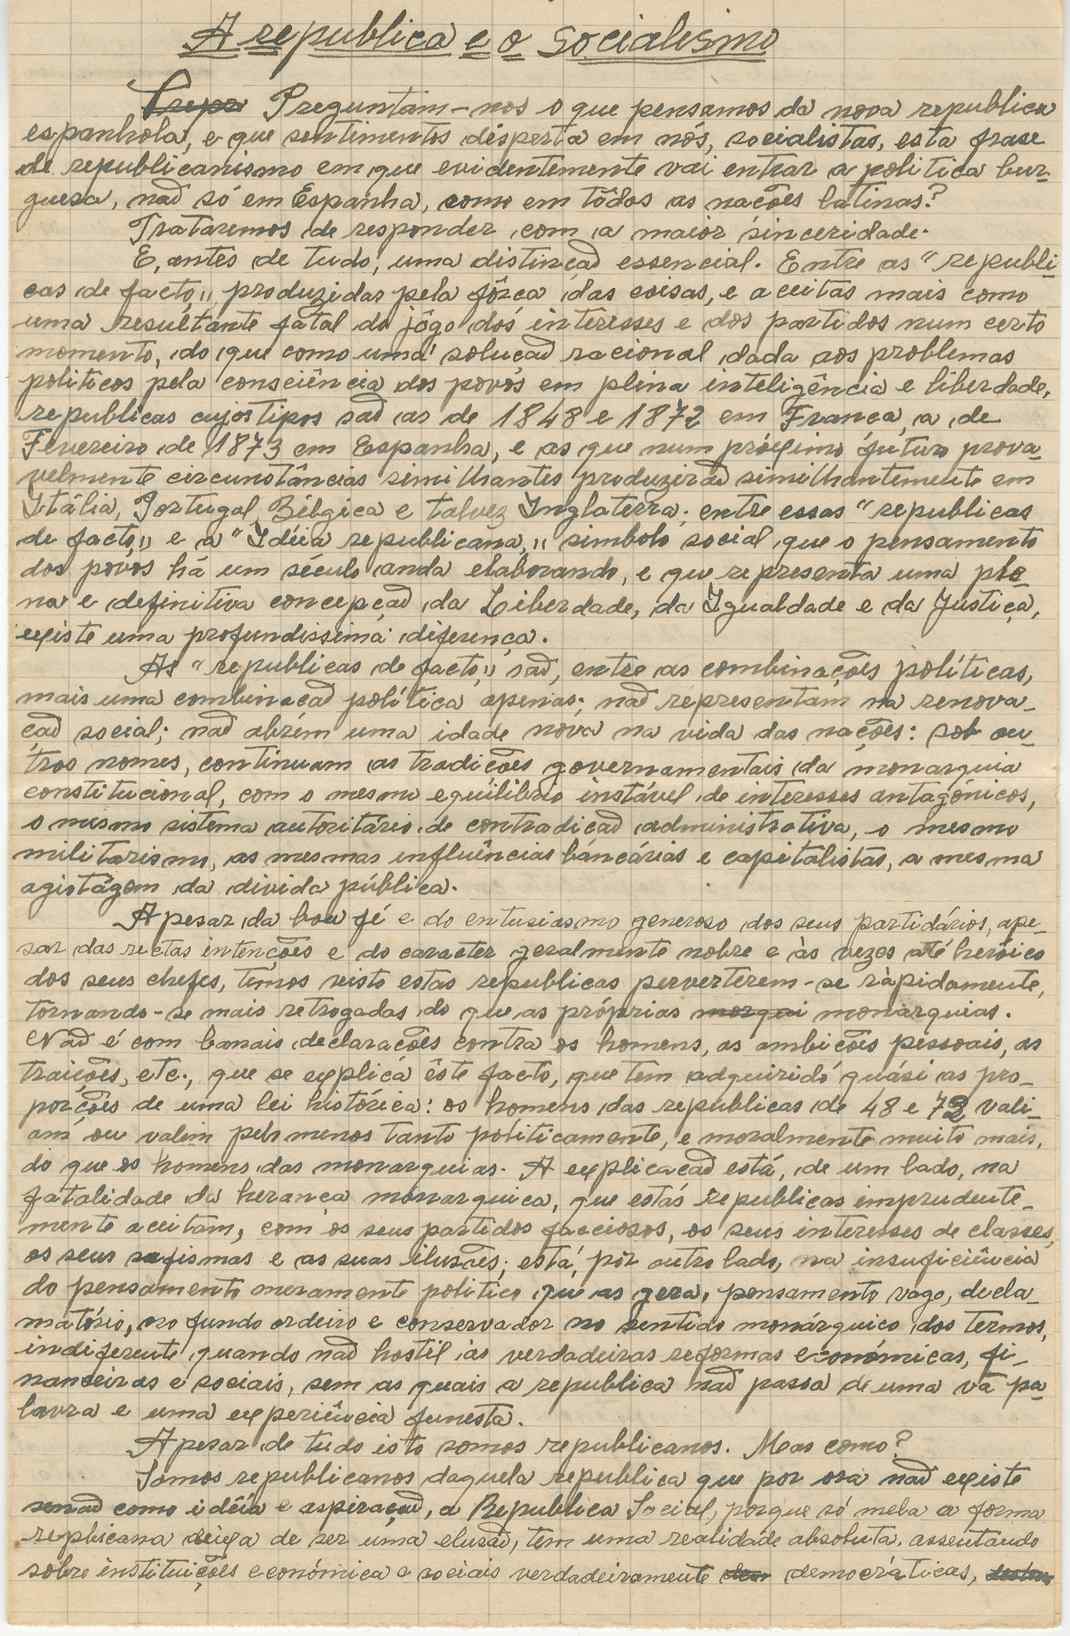 A republica e o socialismo
Preguntam-nos o que pensamos da nova republica
espanhola, e que sentimentos desperta em nós, socialistas, esta frase
de republicanismo em que evidentemente vai entrar a politica bur-
guesa, não só em Espanha, como em tôdas as nações latinas?
Trataremos de responder com a maior sinceridade.
E, antes de tudo, uma distinção essencial. Entre as "republi-
cas de facto,, produzidas pela fôrça das coisas, e aceitas mais como
uma resultante fatal do jôgo dos interesses e dos partidos num certo
momento, do que como uma solução racional dada aos problemas
politicos pela consciência dos povos em plena inteligência e liberdade,
republicas cujos tipos são as de 1848 e 1872 em França, a de
Fevereiro de 1873 em Espanha, e as que num próximo futuro prova-
velmente circunstâncias similhantes produzirão similhantemente em
Itália, Portugal, Bélgica e talvez Inglaterra; entre essas "republicas
de facto,, e a "Idéia republicana,,, simbolo social que o pensamento
dos povos há um século anda elaborando, e que representa uma ple-
na e definitiva concepção da Liberdade, da Igualdade e da Justiça,
existe uma profundissima diferença.
As "republicas de facto,, são, entre as combinações políticas,
mais uma combinação política apenas; não representam na renova-
ção social; não abrem uma idade nova na vida das nações: sob ou-
tros nomes, continuam as tradições governamentais da monarquia
constitucional, com o mesmo equilibrio instável de interesses antagónicos,
o mesmo sistema autoritário de contradição administrativa, o mesmo
militarismo, as mesmas influências bancárias e capitalistas, a mesma
agiotágem da divida pública.
Apesar da boa fé e do entusiasmo generoso dos seus partidários, ape-
sar das rectas intenções e do caracter geralmente nobre e às vezes até heróico
dos seus chefes, temos visto estas republicas perverterem-se ràpidamente,
tornando-se mais retrogadas do que as próprias monarquias.
Não é com banais declarações contra os homens, as ambições pessoais, as
traições, etc., que se explica êste facto, que tem adquirido quási as pro-
porções de uma lei histórica: os homens das republicas de 48 e 73 vali-
am ou valem pelo menos tanto politicamente, e moralmente muito mais,
do que os homens das monarquias. A explicação está, de um lado, na
fatalidade da herança monarquica, que estas republicas imprudente-
mente aceitam, com os seus partidos facciosos, os seus interesses de classes,
os seus sofismas e as suas ilusões; está, por outro lado, na insuficiência
do pensamento meramente politico que as gera, pensamento vago, decla-
matório, no fundo ordeiro e conservador no sentido monárquico dos termos,
indiferente, quando não hostil às verdadeiras reformas económicas, fi-
nanceiras e sociais, sem as quais a republica não passa de uma vã pa-
lavra e uma experiência funesta.
Apesar de tudo isto somos republicanos. Mas como?
Somos republicanos daquela republica que por ora não existe
senão como idéia e aspiração, a Republica Social, porque só nela a forma
replicana deixa de ser uma elusão, tem uma realidade absoluta, assentando
sobre instituições económica e sociais verdadeiramente democráticas,